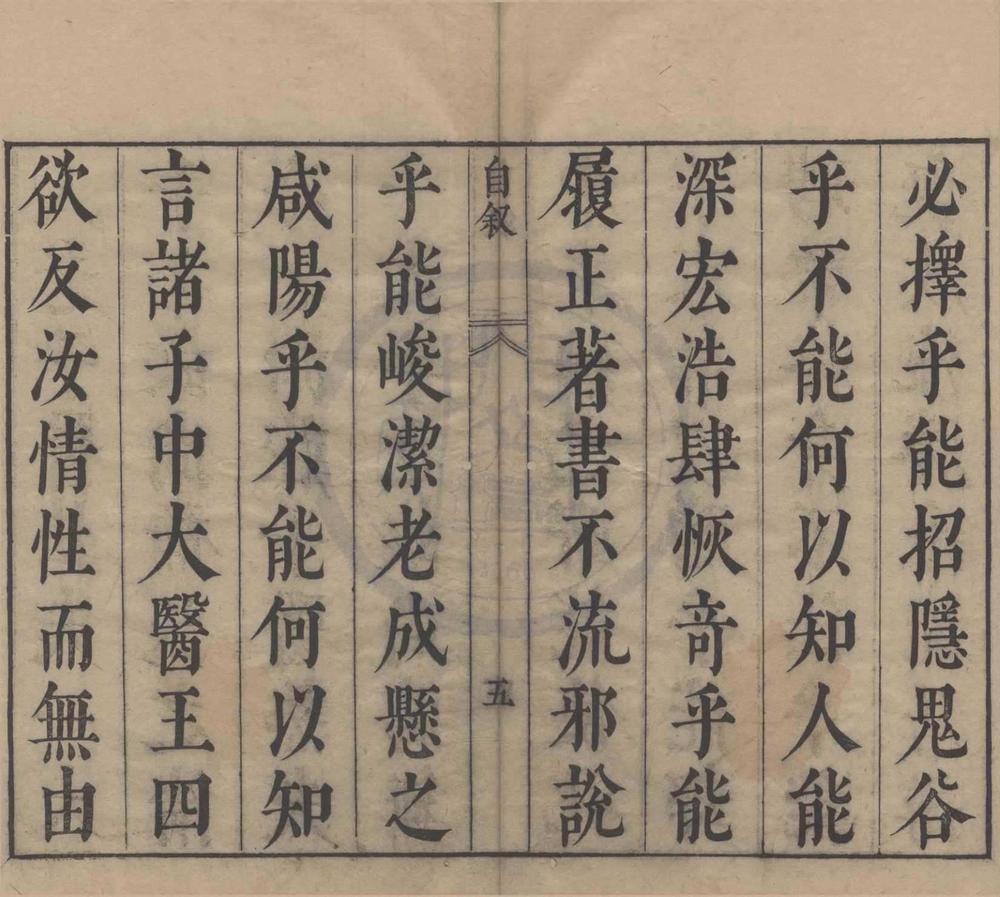 必擇乎能招隱鬼谷
乎不能何以知人能
深宏浩肆恢竒乎能
履正著書不流邪說
自叙
五
乎能峻潔老成懸之
咸陽乎不能何以知
言諸子中大醫王四
欲反汝情性而無由